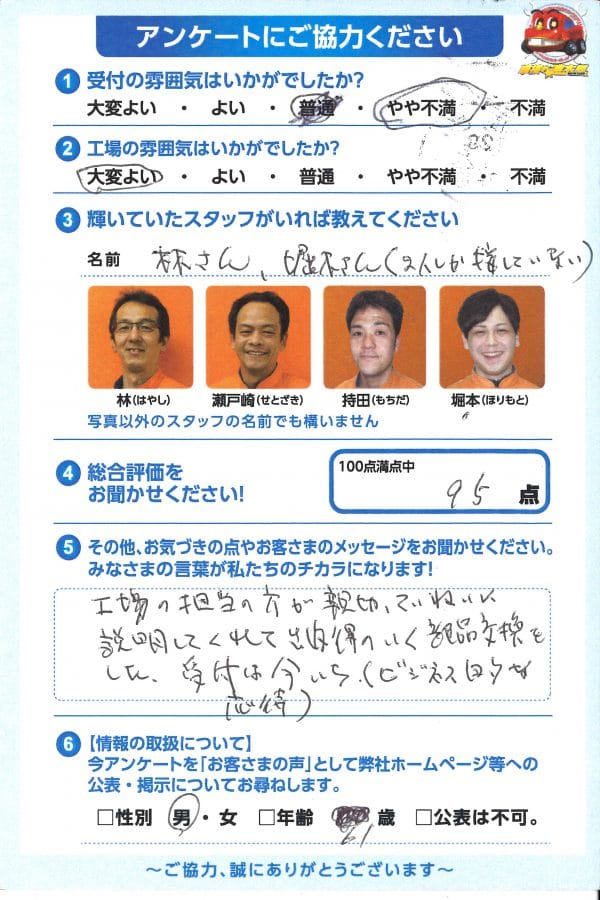 アンケートにご協力ください
1 受付の雰囲気はいかがでしたか?
大変よい ・ よい ・ 普通 ・ やや不満 ・ 不満
2 工場の雰囲気はいかがでしたか?
大変よい ・ よい ・ 普通 ・ やや不満 ・ 不満
3 輝いていたスタッフがいれば教えてください
名前 林さん、堀本さん(2人しか接していない)
林(はやし) 瀬戸崎(せとざき) 持田(もちだ) 堀本(ほりもと)
写真以外のスタッフの名前でも構いません
4 総合評価を
お聞かせください!
100点満点中
95 点
5 その他、お気づきの点やお客さまのメッセージをお聞かせください。
みなさまの言葉が私たちのチカラになります!
工場の担当の方が親切、ていねいに
説明してくれて納得のいく部品交換を
した、受付は今いち、(ビジネス的な
応待)
6 【情報の取扱について】
今アンケートを「お客さまの声」として弊社ホームページ等への
公表・掲示についてお尋ねします。
□性別 男・女 □年齢 61 歳 □公表は不可。
～ご協力、誠にありがとうございます～